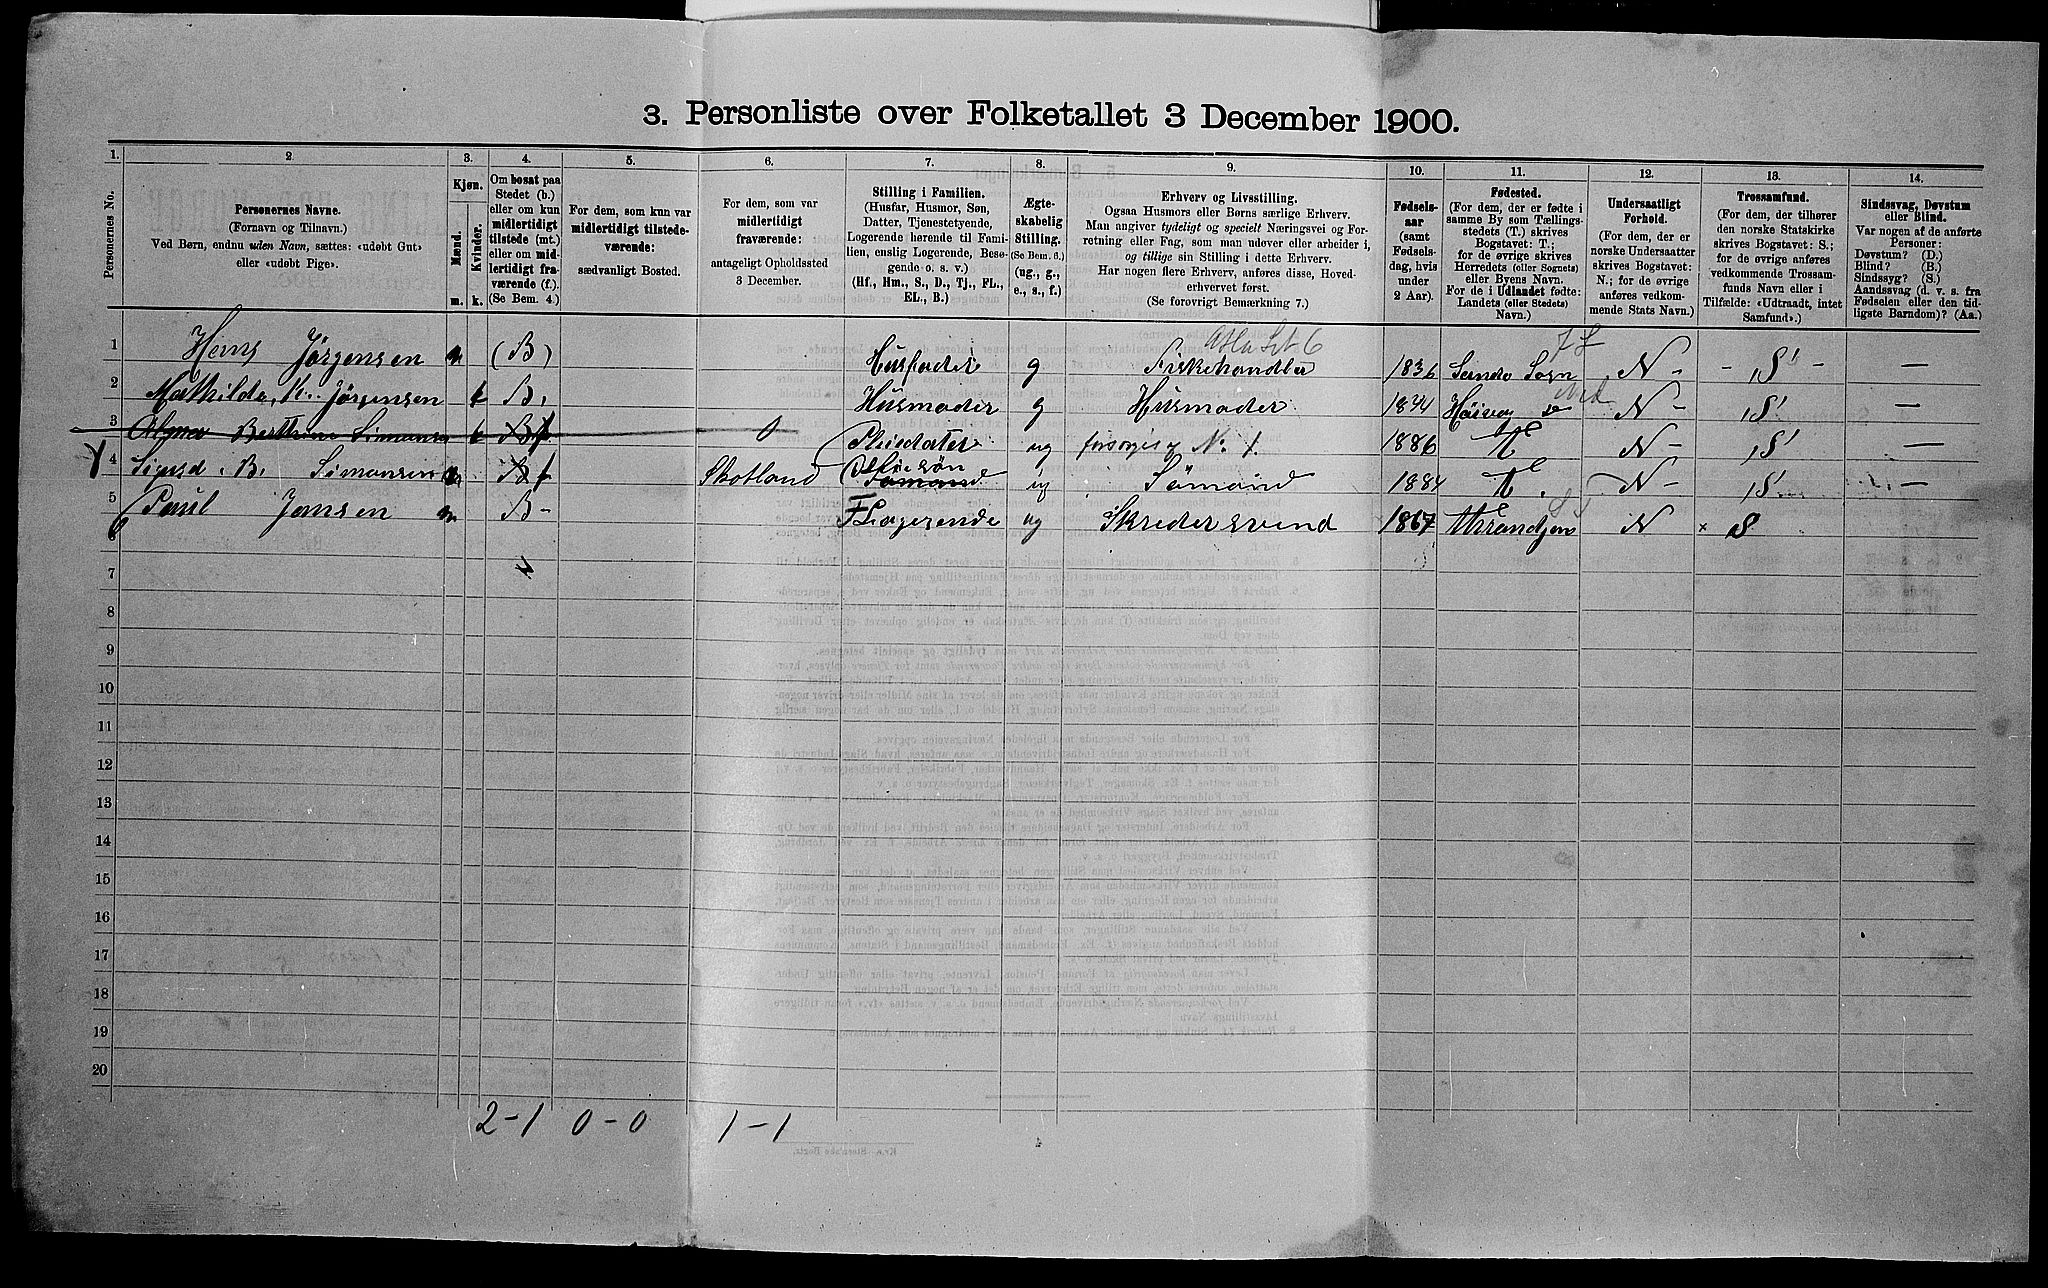 3. Personliste over Folketallet 3 December 1900.
1. 2. 3. 4. 5. 6. 7. 8. 9. 10. 11. 12. 13. 14.
Personernes No.
Personernes Navne.
(Fornavn og Tilnavn.)
Ved Børn, endnu uden Navn, sættes: «udøbt Gut»
eller «udøbt Pige».
Kjøn.
Mænd.
Kvinder.
m. k.
Om bosat paa
Stedet (b.)
eller om kun
midlertidigt
tilstede (mt.)
eller om mid-
lertidigt fra-
værende (f.)
(Se Bem. 4.)
For dem, som kun var
midlertidigt tilstede-
værende:
sædvanligt Bosted.
For dem, som var
midlertidigt
fraværende:
antageligt Opholdssted
3 December.
Stilling i Familien.
(Husfar, Husmor, Søn,
Datter, Tjenestetyende,
Logerende hørende til Fami-
lien, enslig Logerende, Besø-
gende o. s. v.)
(Hf., Hm., S., D., Tj., FL.,
EL., B.)
Ægte-
skabelig
Stilling.
(Se Bem. 6.)
(ug., g.,
e., s., f.)
Erhverv og Livsstilling.
Ogsaa Husmors eller Børns særlige Erhverv.
Man angiver tydeligt og specielt Næringsvei og For-
retning eller Fag, som man udøver eller arbeider i,
og tillige sin Stilling i dette Erhverv.
Har nogen flere Erhverv, anføres disse, Hoved-
erhvervet først.
(Se forøvrigt Bemærkning 7.)
Fødsels-
aar
(samt
Fødsels-
dag, hvis
under
2 Aar).
Fødested.
(For dem, der er fødte i
samme By som Tællings-
stedets (T.) skrives
Bogstavet: T.;
for de øvrige skrives
Herredets (eller Sognets)
eller Byens Navn.
For de i Udlandet fødte:
Landets (eller Stedets)
Navn.)
Undersaatligt
Forhold.
(For dem, der er
norske Undersaatter
skrives Bogstavet:
N.; for de øvrige
anføres vedkom-
mende Stats Navn.)
Trossamfund.
(For dem, der tilhører
den norske Statskirke
skrives Bogstavet: S.;
for de øvrige anføres
vedkommende Trossam-
funds Navn eller i
Tilfælde: «Udtraadt, intet
Samfund».)
Sindssvag, Døvstum
eller Blind.
Var nogen af de anførte
Personer:
Døvstum? (D.)
Blind? (B.)
Sindssyg? (S.)
Aandssvag (d. v. s. fra
Fødselen eller den tid-
ligste Barndom)? (Aa.)
1 Hans Jørgensen m (B) Husfader g Fiskehandler 1836 Sando Sogn N - - S - —
2 Mathilde K. Jørgensen k B. Husmoder g Husmoder 1844 N - S —
3 Berthine Simonsen k 0 Pleiedatter ug forsørges af No. 1. 1886 T N - S —
4 Sigurd B. Simonsen m f Skotland Pleiesøn ug Sömand 1884 T. N - S —
5 Paul Jansen m B- F Logerende ug Skredersvend 1867 N × S
6
7
8
9
10
11
12
13
14
15
16
17
18
19
20
2-1 0-0 1-1